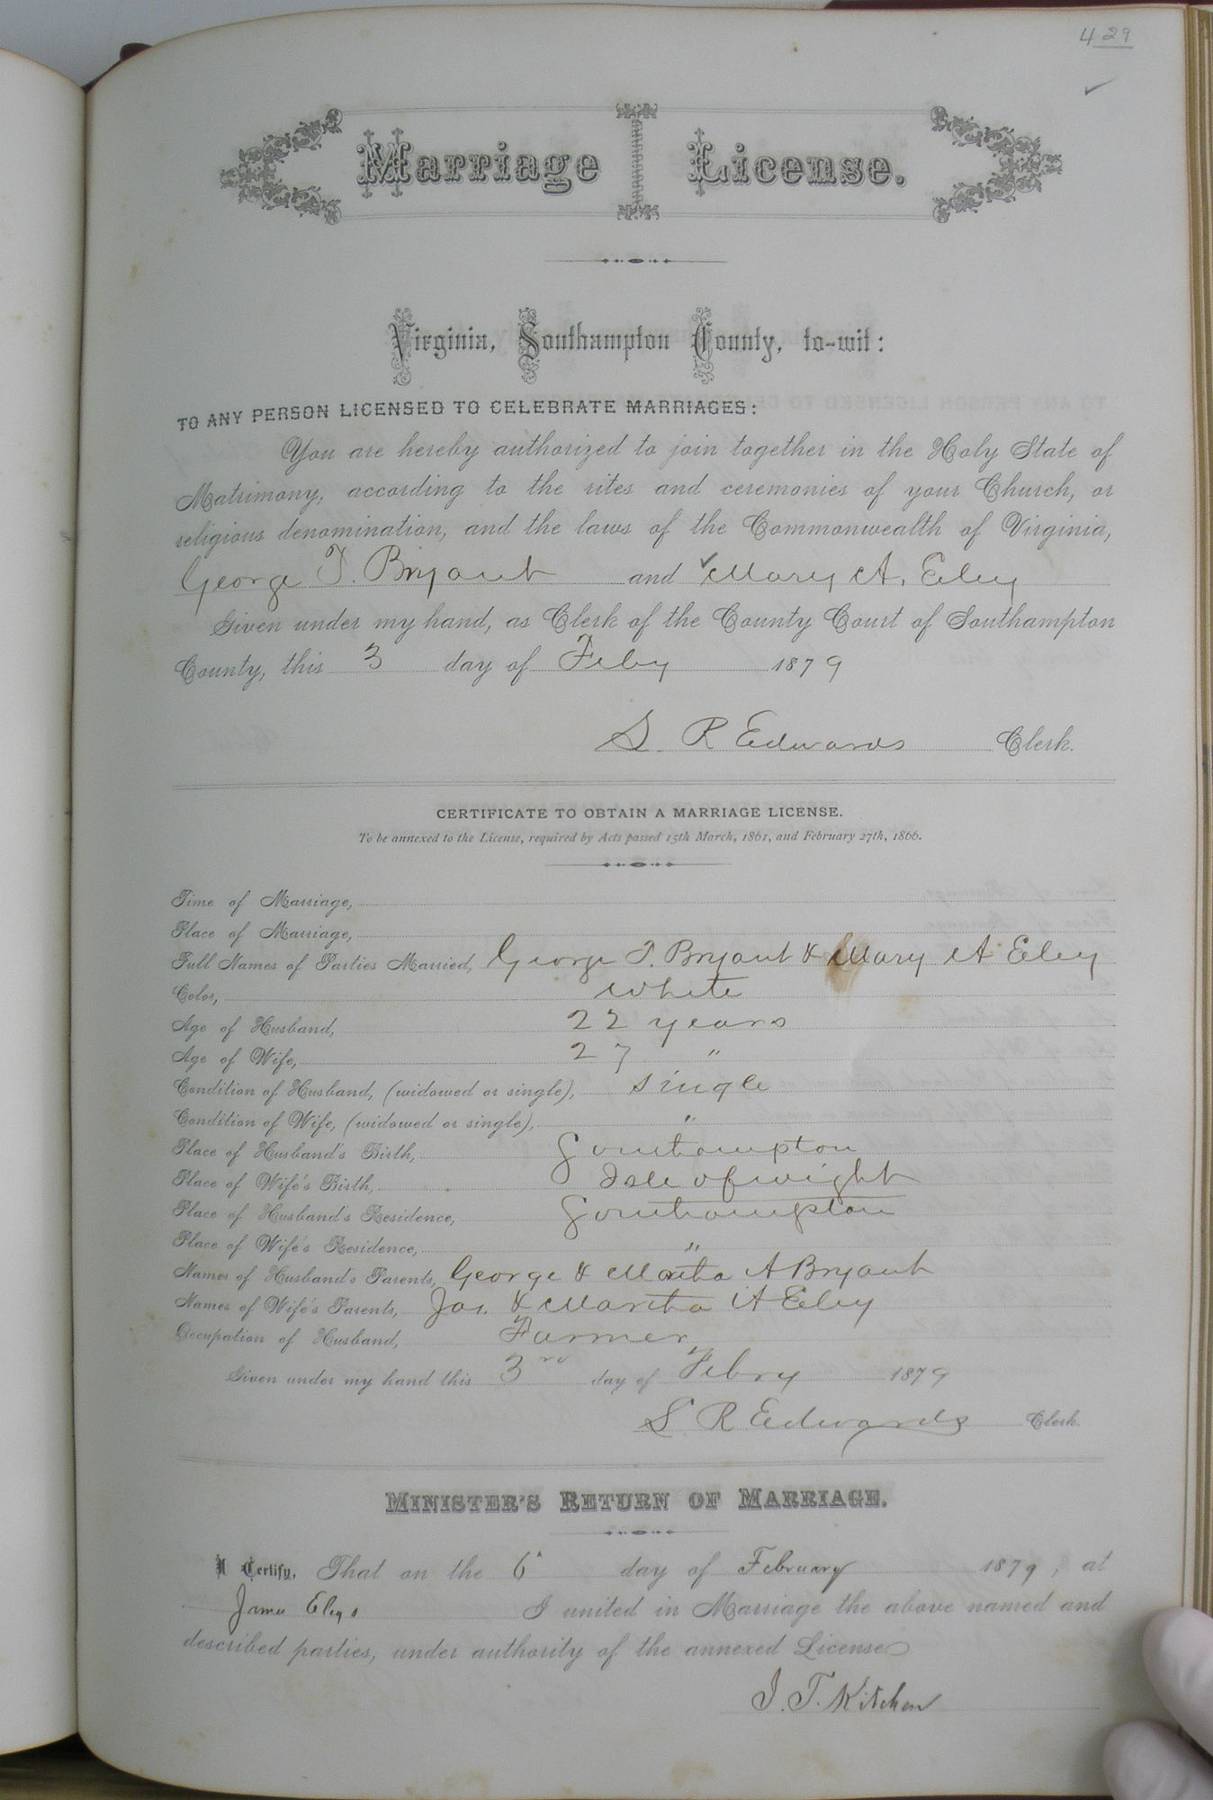 429
Marriage License.
Virginia, Southampton County, to-wit:
TO ANY PERSON LICENSED TO CELEBRATE MARRIAGES:
You are hereby authorized to join together in the Holy State of
Matrimony, according to the rites and ceremonies of your Church, or
religious denomination, and the laws of the Commonwealth of Virginia,
George T. Bryant and Mary A. Eley
Given under my hand, as Clerk of the County Court of Southampton
County, this 3 day of Feby 1879
S. R Edwards Clerk.
CERTIFICATE TO OBTAIN A MARRIAGE LICENSE.
To be annexed to the License, required by Acts passed 15th March, 1861, and February 27th, 1866.
Time of Marriage,
Place of Marriage,
Full Names of Parties Married, George T. Bryant & Mary A Eley
Color, White
Age of Husband, 22 years
Age of Wife, 27 "
Condition of Husband, (widowed or single), Single
Condition of Wife, (widowed or single), "
Place of Husband's Birth, Southampton
Place of Wife's Birth, Isle of wight
Place of Husband's Residence, Southampton
Place of Wife's Residence, "
Names of Husband's Parents, George & Martha A Bryant
Names of Wife's Parents, Jas. & Martha A Eley
Occupation of Husband, Farmer
Given under my hand this 3rd day of Febry 1879
S R Edwards Clerk.
MINISTER'S RETURN OF MARRIAGE.
I Certify, That on the 6" day of February 1879, at
James Eley's I united in Marriage the above named and
described parties, under authority of the annexed License
J. T. Kitchen